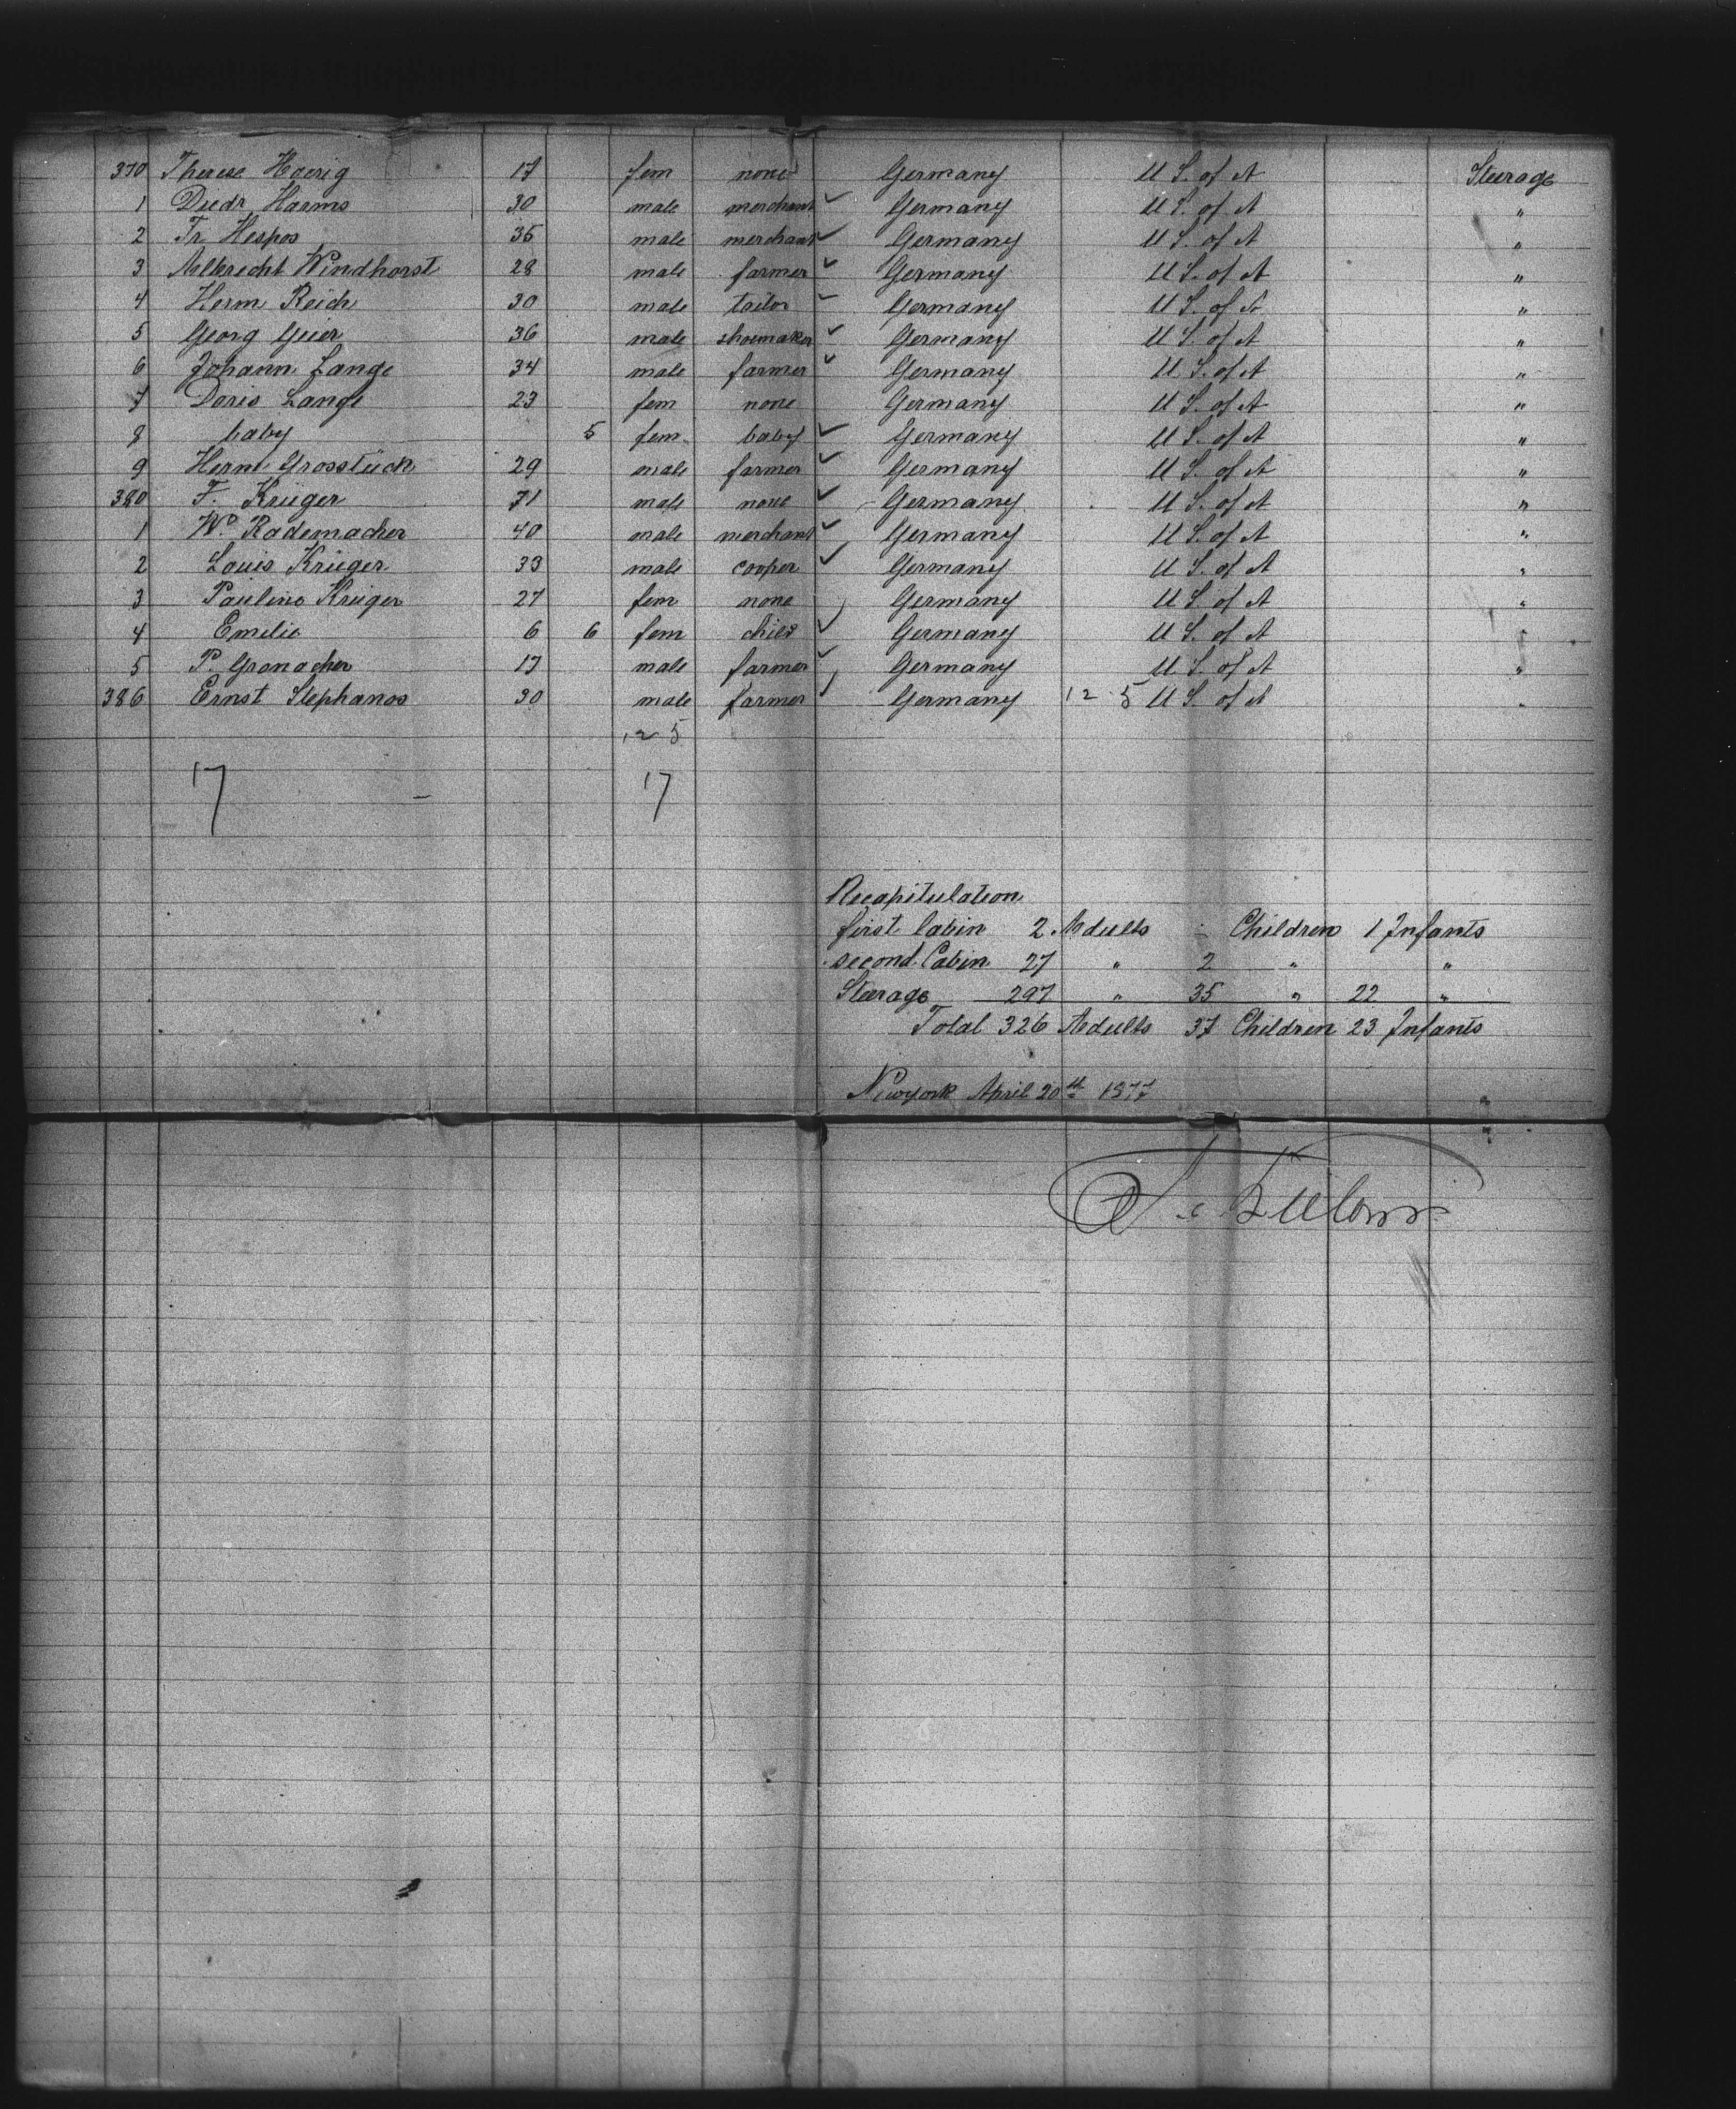 370 Therese Haesig 17 fem none Germany U S. of A Steerage
1 Diedr Harms 30 male merchant ✓ Germany U S. of A "
2 Fr. Hespos 35 male merchant ✓ Germany U S. of A "
3 Albrecht Windhorst 28 male farmer ✓ Germany U S. of A "
4 Herm Reich 30 male tailor ✓ Germany U S. of A "
5 Georg Geier 36 male shoemaker ✓ Germany U S. of A "
6 Johann Lange 34 male farmer ✓ Germany U S. of A "
7 Doris Lange 23 fem none Germany U S. of A "
8 baby 5 fem baby ✓ Germany U S. of A "
9 Herm Grosstück 29 male farmer ✓ Germany U S. of A "
380 F. Krüger 71 male none ✓ Germany U S. of A "
1 W. Rademacher 40 male merchant ✓ Germany U S. of A "
2 Louis Krüger 33 male cooper ✓ Germany U S. of A "
3 Pauline Krüger 27 fem none Germany U S. of A "
4 Emilie 6 6 fem child ✓ Germany U S. of A "
5 P. Gronacher 17 male farmer ✓ Germany U S. of A "
386 Ernst Stephanos 30 male farmer ✓ Germany 12 5 U S. of A "
12 5
17 17
Recapitulation
first Cabin 2 Adults Children 1 Infants
second Cabin 27 " 2 " "
Steerage 297 " 35 " 22 "
Total 326 Adults 37 Children 23 Infants
Newyork April 20th 1877